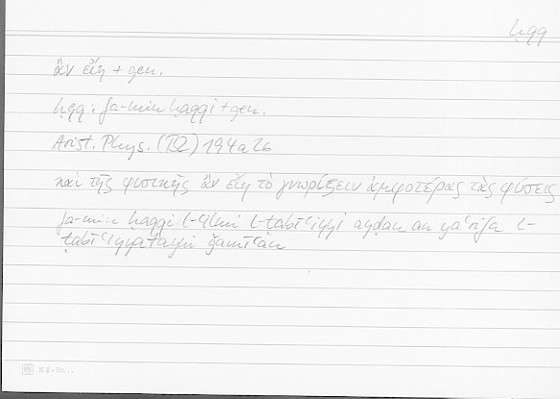 ḥqq
ἂν εἴη + gen.
ḥqq : fa-min ḥaqqi + gen.
Arist. Phys. (II2) 194a26
καὶ τῆς φυσικῆς ἂν εἴη τὸ γνωρίζειν ἀμφοτέρας τὰς φύσεις
fa-min ḥaqqi l-ʿilmi l-ṭabīʿiyyi ayḍan an yaʿrifa l-
ṭabīʿiyyataini ǧamīʿan